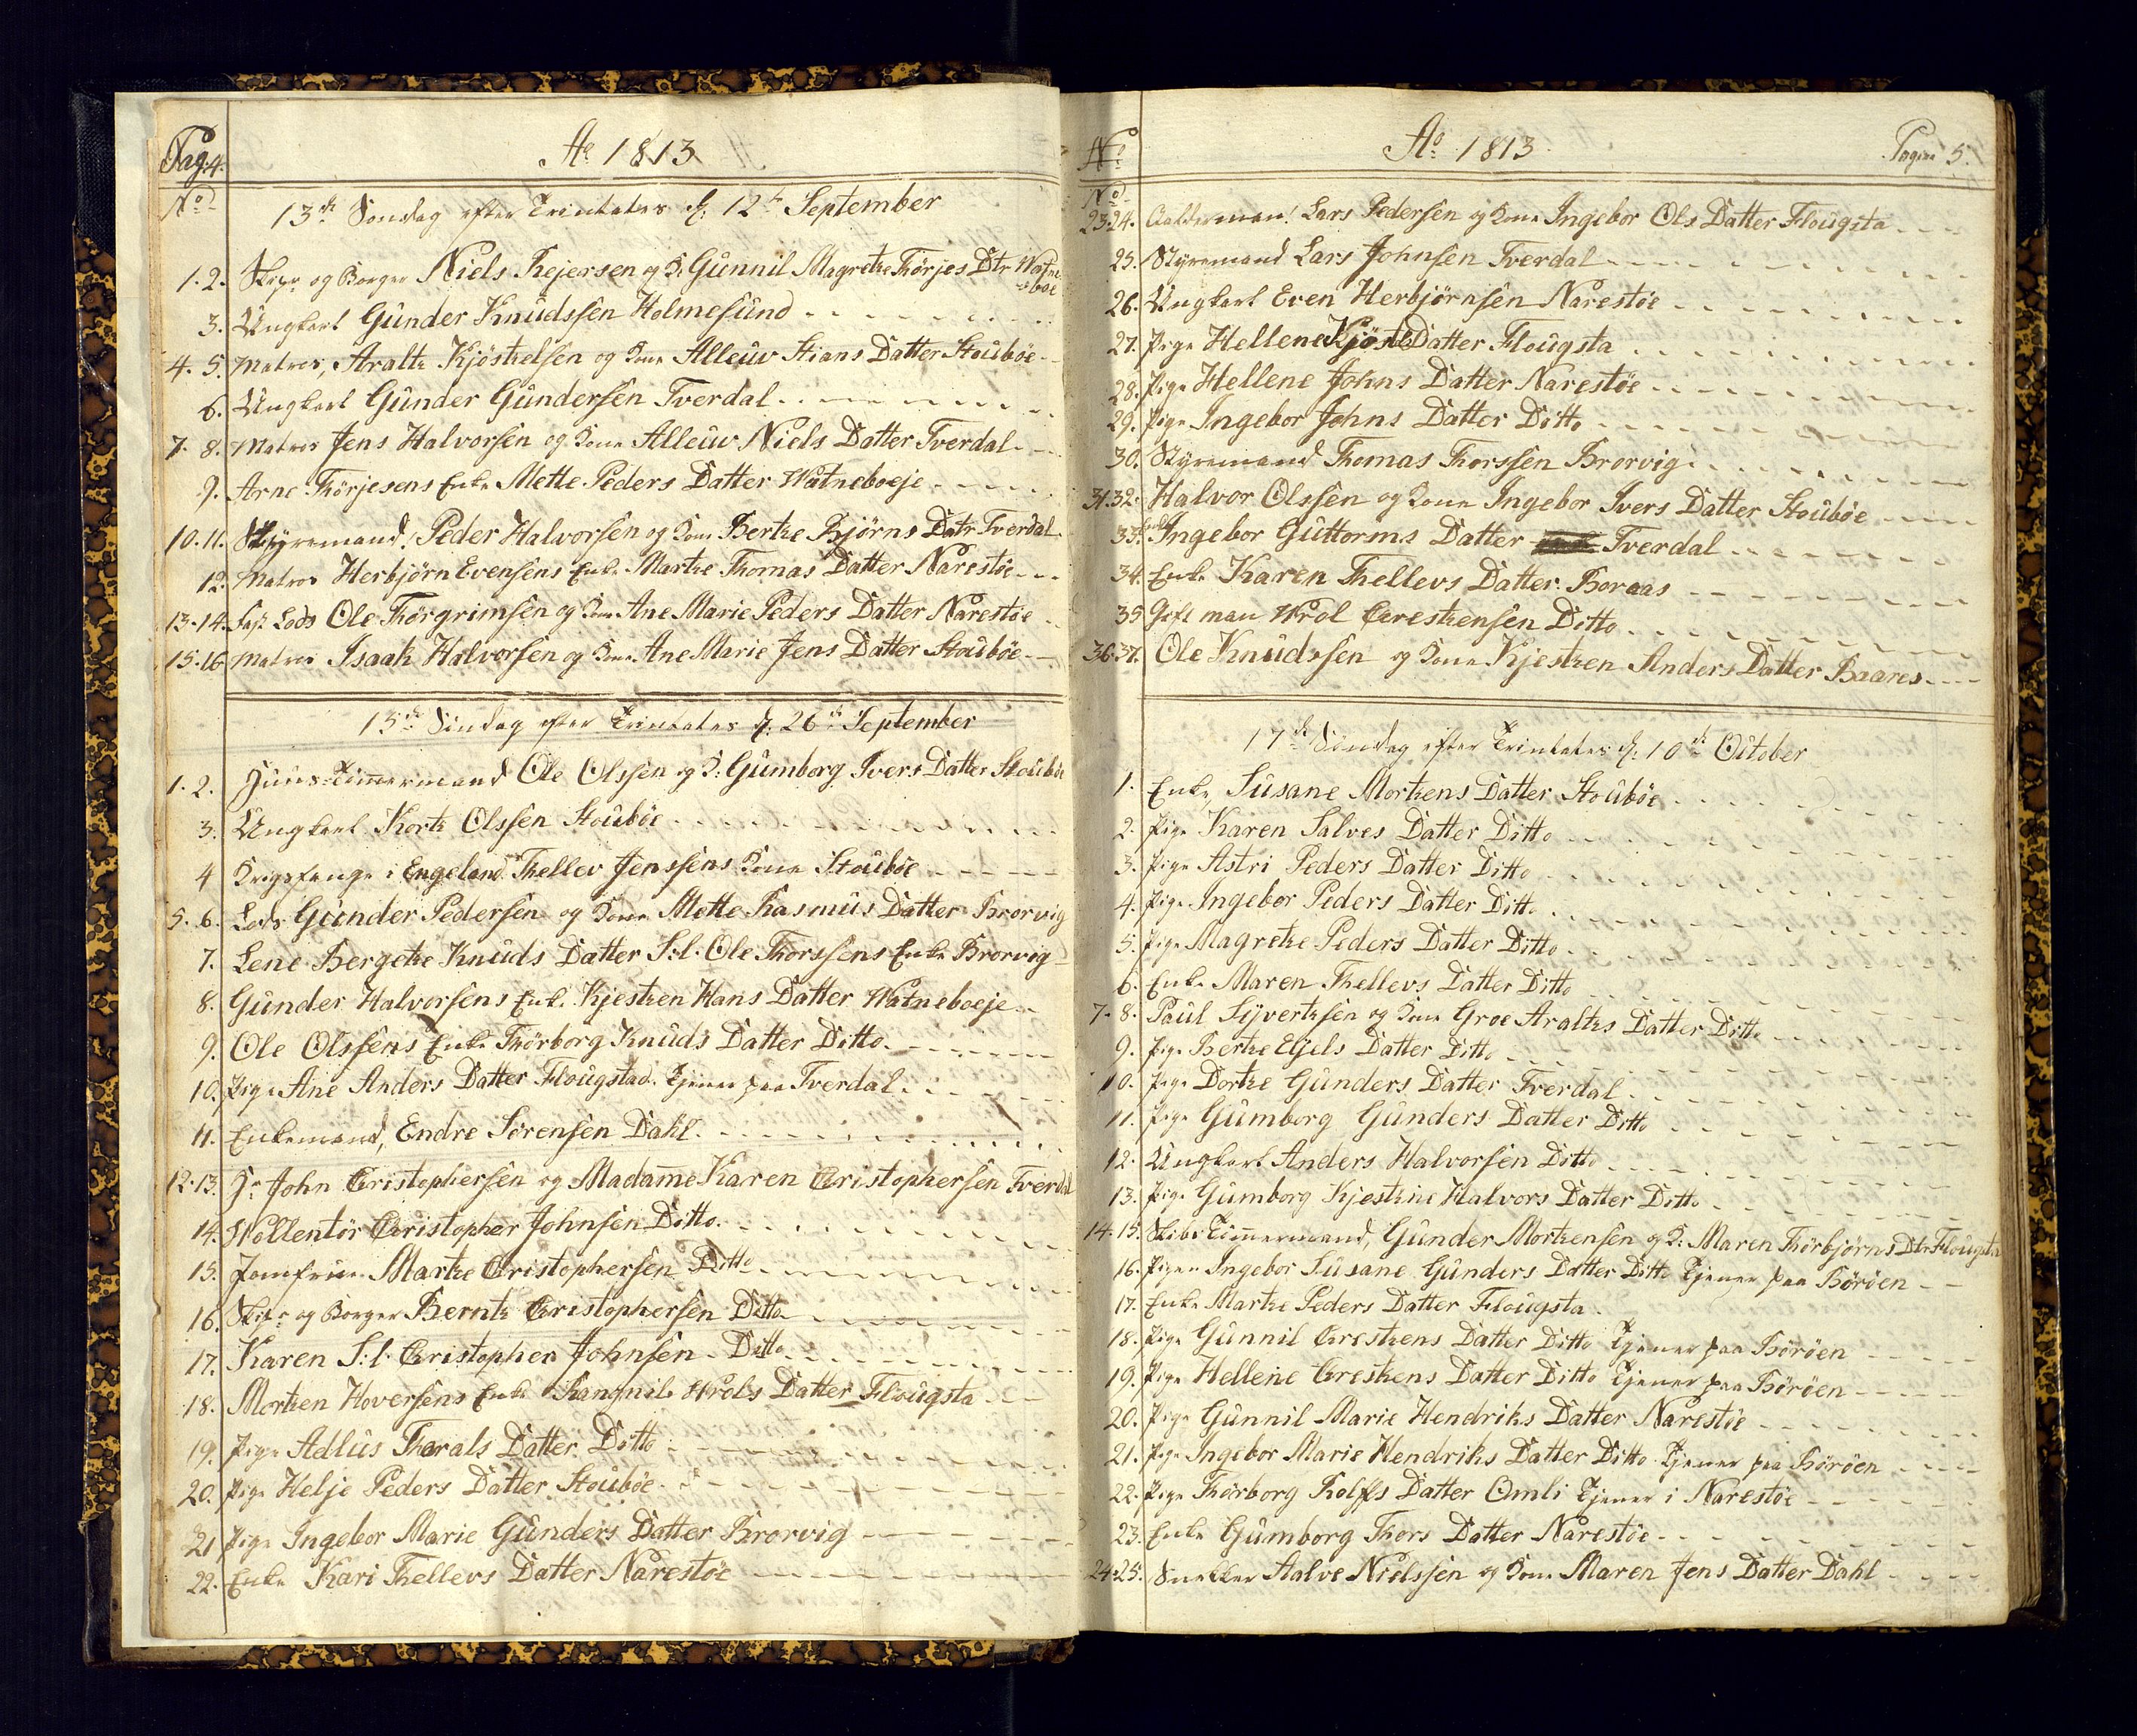 Pag: 4.
Ao 1813
No
13de Sondag efter Trinitatis d: 12te September
1. 2. Skipr og Borger Niels Rejersen og K: Gunnil Magrethe Thörjes Dtr Watne=
boe
3. Ungkarl Gunder Knudssen Holmesund
4. 5. Matros, Aralth Kjöstelsen og Kone Alleuv Stians Datter Stouböe
6. Ungkarl Gunder Gundersen Tverdal
7. 8. Matros Jens Halvorsen og Kone Alleuv Niels Datter Tverdal
9. Arne Thörjesens Enke Mette Peders Datter Watneboeje
10. 11. Styremand, Peder Halvorsen og Kone Berthe Björns Datr Tverdal
12. Matros Herbjörn Evensens Enke Marthe Thomas Datter Narestöe
13. 14. Fast Lods Ole Thörgrimsen og Kone Ane Marie Peders Datter Narestöe
15. 16 Matros Isaak Halvorsen og Kone Ane Marie Jens Datter Stouböe
15de Söndag efter Trinitatis d: 26de September
1. 2. Huus=Timermand Ole Olssen og K: Gumborg Ivers Datter Stouböe
3. Ungkarl Korth Olssen Stouböe
4 Krigsfange i Engeland Thellev Jenssens Kone Stouböe
5. 6. Lods Gunder Pedersen og Kone Mette Rasmus Datter Brorvig
7. Lene Bergethe Knuds Datter S:l. Ole Thorssens Enke Brorvig
8. Gunder Halvorsens Enke Kjesthen Hans Datter Watneboeje
9. Ole Olssens Enke Thörborg Knuds Datter Ditto
10. Pige Ane Anders Datter Flougstad Tjener paa Tverdal
11. Enkemand, Endre Sörensen Dahl
12. 13. Hr John Christophersen og Madame Karen Christophersen Tverdal
14. Wollentör Christopher Johnsen Ditto
15. Jomfrue Marthe Christophersen Ditto
16. Skipr og Borger Bernth Christophersen Ditto
17. Karen S:l. Christopher Johnsen Ditto
18. Morthen Hoversens Enke Rangnile Wrols Datter Flougsta
19. Pige Adlus Tharals Datter Ditto
20. Pige Helje Peders Datter Stouböe
21 Pige Ingebor Marie Gunders Datter Brorvig
22. Enke Kari Thellevs Datter Narestöe
No
Ao 1813
Pagina 5.
No
23. 24. Aalderman! Lars Pedersen og Kone Ingebor Ols Datter Flougsta
25. Styremand Lars Johnsen Tverdal
26. Ungkarl Even Herbjörnsen Narestöe
27. Pige Hellene Kjöstel Datter Flougsta
28. Pige Hellene Johns Datter Narestöe
29. Pige Ingebor Johns Datter Ditto
30. Styremand Thomas Thorssen Brorvig
31. 32. Halvor Olssen og Kone Ingebor Ivers Datter Stouböe
33. Ingebor Guttorms Datter Tverdal
34. Enke Karen Thellevs Datter Boraas
35 Gift man Wrol Chresthensen Ditto
36. 37. Ole Knudssen og Kone Kjesthen Anders Datter Baares
17de Söndag efter Trinitatis d: 10de October
1. Enke, Susane Morthens Datter Stouböe
2. Pige Karen Salves Datter Ditto
3. Pige Astri Peders Datter Ditto
4. Pige Ingebor Peders Datter Ditto
5. Pige Magrethe Peders Datter Ditto
6. Enke Maren Thellevs Datter Ditto
7. 8. Paul Syverthsen og Kone Groe Aralths Datter Ditto
9. Pige Berthe Eljels Datter Ditto
10. Pige Dorthe Gunders Datter Tverdal
11. Pige Gumborg Gunders Datter Ditto
12. Ungkarl Anders Halvorsen Ditto
13. Pige Gumborg Kjesthine Halvors Datter Ditto
14. 15. Skibs Timermand, Gunder Morthensen og K: Maren Thörbjörns Dtr Flougsta
16. Pigen Ingebor Susane Gunders Datter Ditto Tjener paa Böröen
17. Enke Marthe Peders Datter Flougsta
18. Pige Gunnil Chresthens Datter Ditto Tjener paa Böröen
19. Pige Hellene Chresthens Datter Ditto Tjener paa Böröen
20. Pige Gunnil Marie Hendriks Datter Narestöe
21. Pige Ingebor Marie Hendriks Datter Ditto Tjener paa Böröen
22. Pige Thörborg Rolffs Datter Omli Tjener i Narestöe
23. Enke Gumborg Thors Datter Narestöe
24. 25. Snekker Aalve Nielssen og Kone Maren Jens Datter Dahl